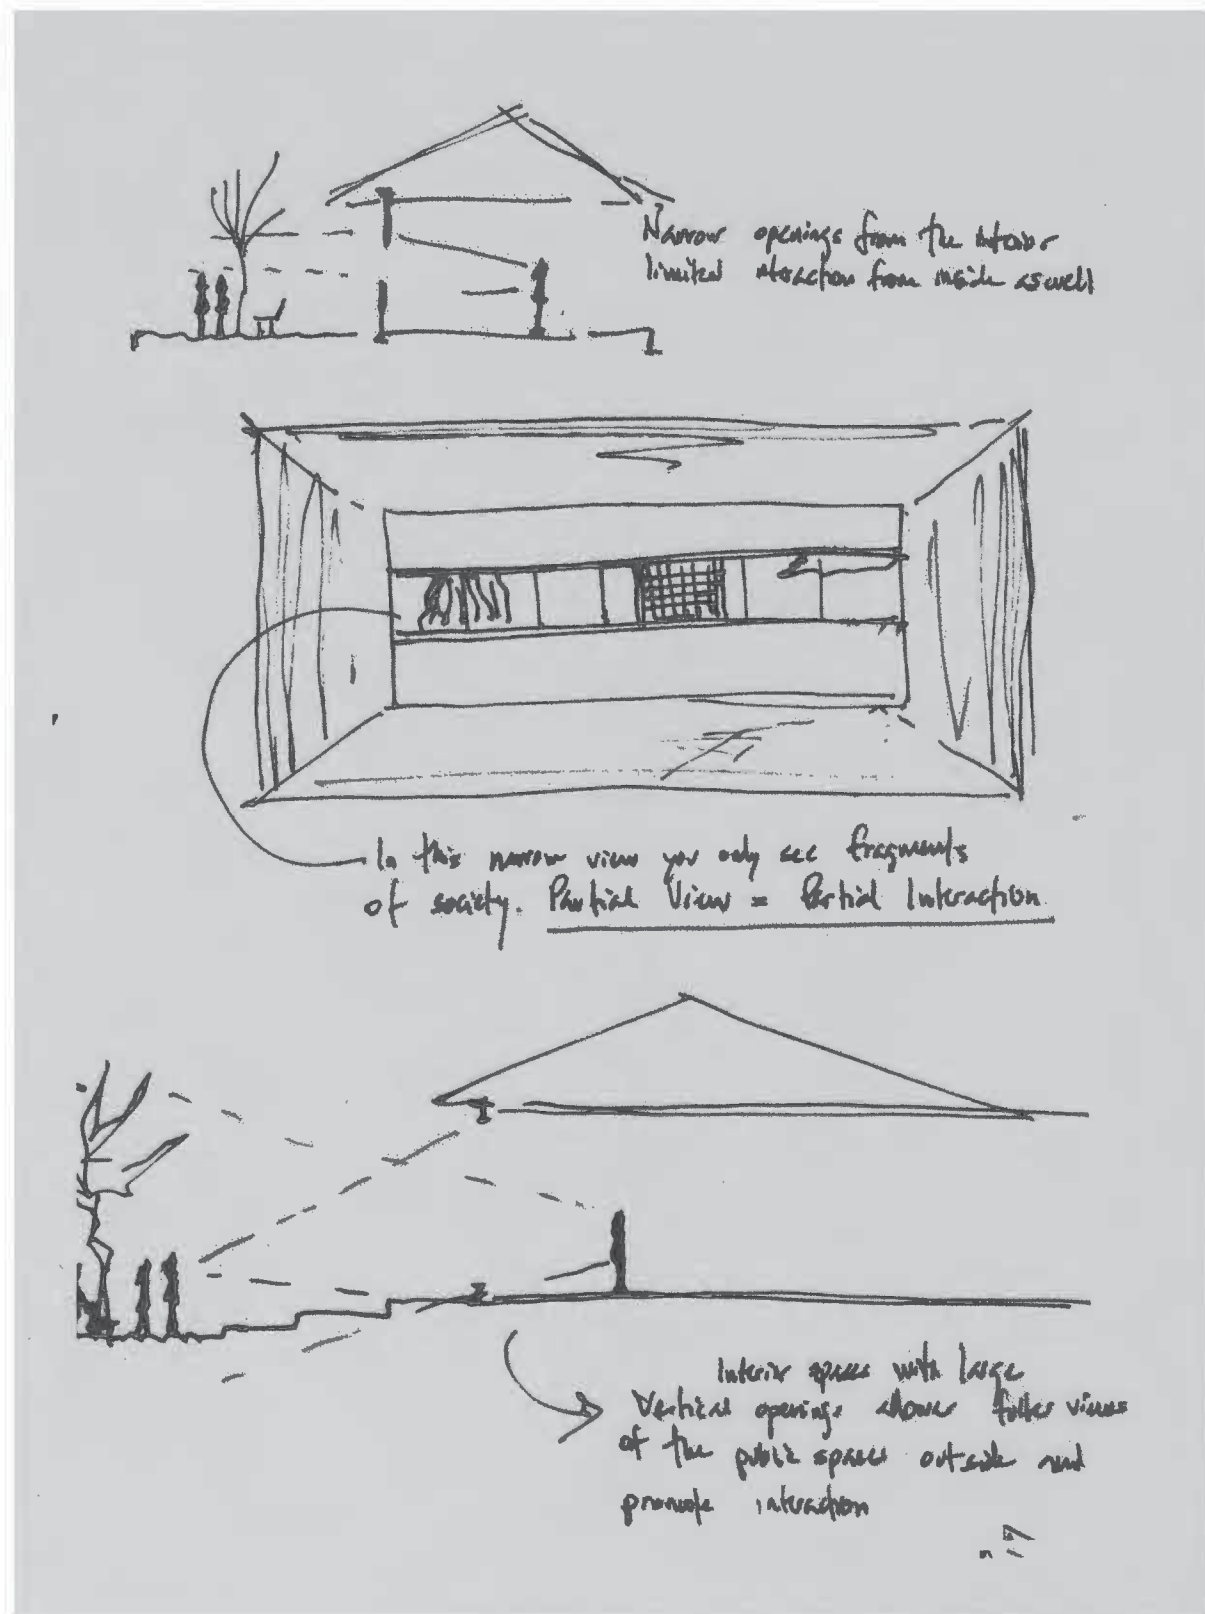 Narrow openings from the interior
limited interaction from inside as well
In this narrow view you only see fragments
of society. Partial View = Partial Interaction
Interior spaces with large
Vertical openings allows fuller views
of the public spaces outside and
promote interaction